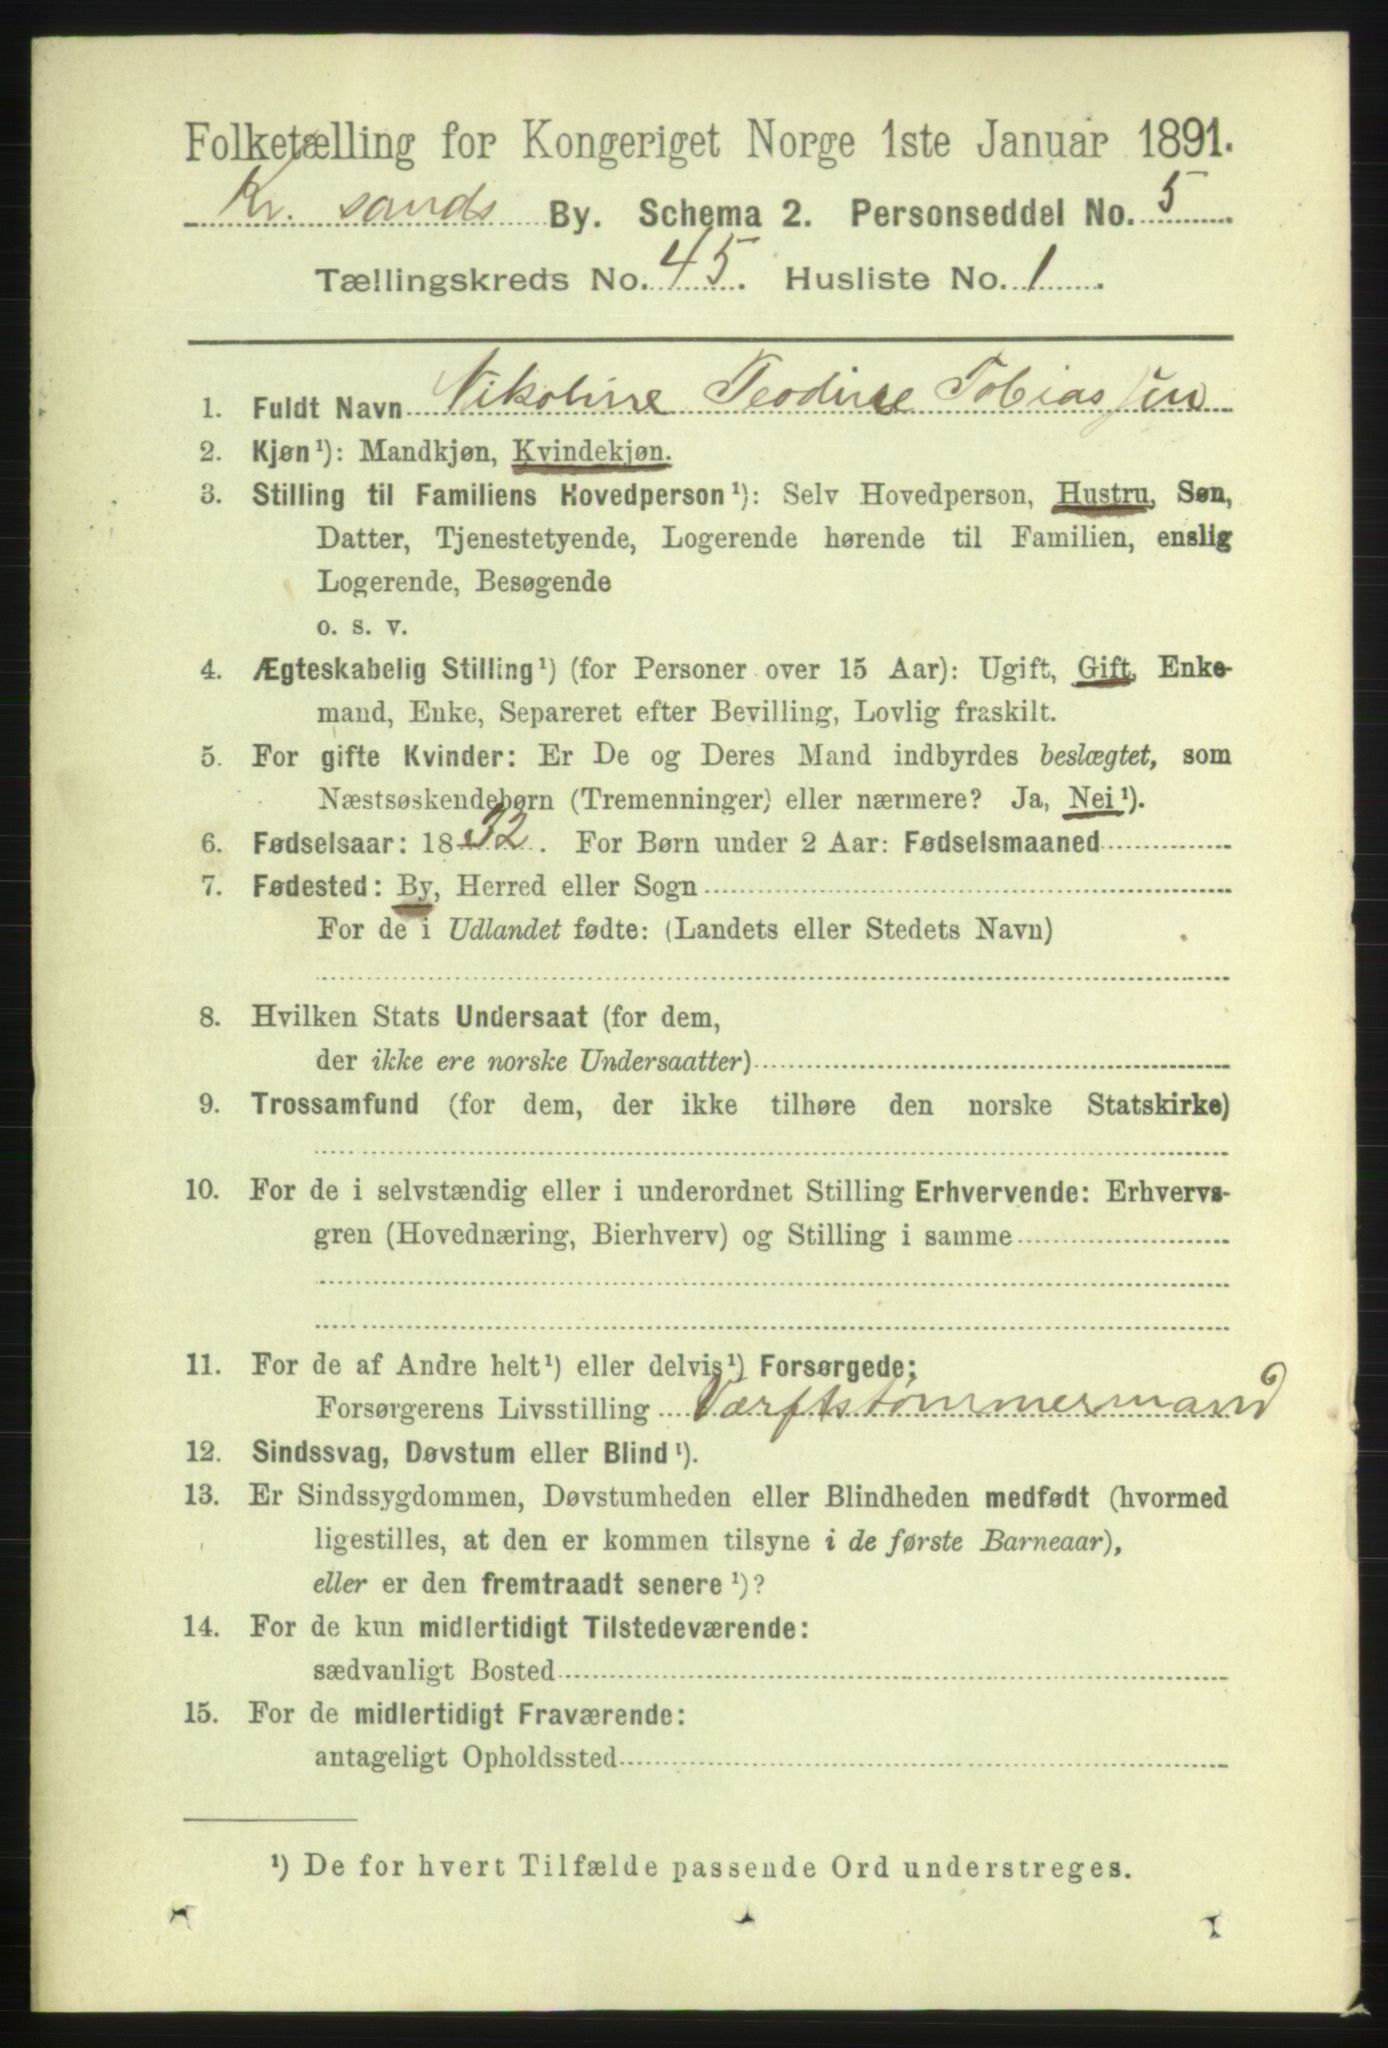 Folketælling for Kongeriget Norge 1ste Januar 1891.
Kr. sands By. Schema 2. Personseddel No. 5
Tællingskreds No. 45. Husliste No. 1.
1. Fuldt Navn Nikoline Teodine Tobiassen
2. Kjøn¹): Mandkjøn, Kvindekjøn.
3. Stilling til Familiens Hovedperson¹): Selv Hovedperson, Hustru, Søn,
Datter, Tjenestetyende, Logerende hørende til Familien, enslig
Logerende, Besøgende
o. s. v.
4. Ægteskabelig Stilling¹) (for Personer over 15 Aar): Ugift, Gift, Enke-
mand, Enke, Separeret efter Bevilling, Lovlig fraskilt.
5. For gifte Kvinder: Er De og Deres Mand indbyrdes beslægtet, som
Næstsøskendebørn (Tremenninger) eller nærmere? Ja, Nei¹).
6. Fødselsaar: 1832. For Børn under 2 Aar: Fødselsmaaned
7. Fødested: By, Herred eller Sogn
For de i Udlandet fødte: (Landets eller Stedets Navn)
8. Hvilken Stats Undersaat (for dem,
der ikke ere norske Undersaatter)
9. Trossamfund (for dem, der ikke tilhøre den norske Statskirke)
10. For de i selvstændig eller i underordnet Stilling Erhvervende: Erhvervs-
gren (Hovednæring, Bierhverv) og Stilling i samme
11. For de af Andre helt¹) eller delvis¹) Forsørgede:
Forsørgerens Livsstilling Værftstømmermand
12. Sindssvag, Døvstum eller Blind¹).
13. Er Sindssygdommen, Døvstumheden eller Blindheden medfødt (hvormed
ligestilles, at den er kommen tilsyne i de første Barneaar),
eller er den fremtraadt senere¹)?
14. For de kun midlertidigt Tilstedeværende:
sædvanligt Bosted
15. For de midlertidigt Fraværende:
antageligt Opholdssted
¹) De for hvert Tilfælde passende Ord understreges.